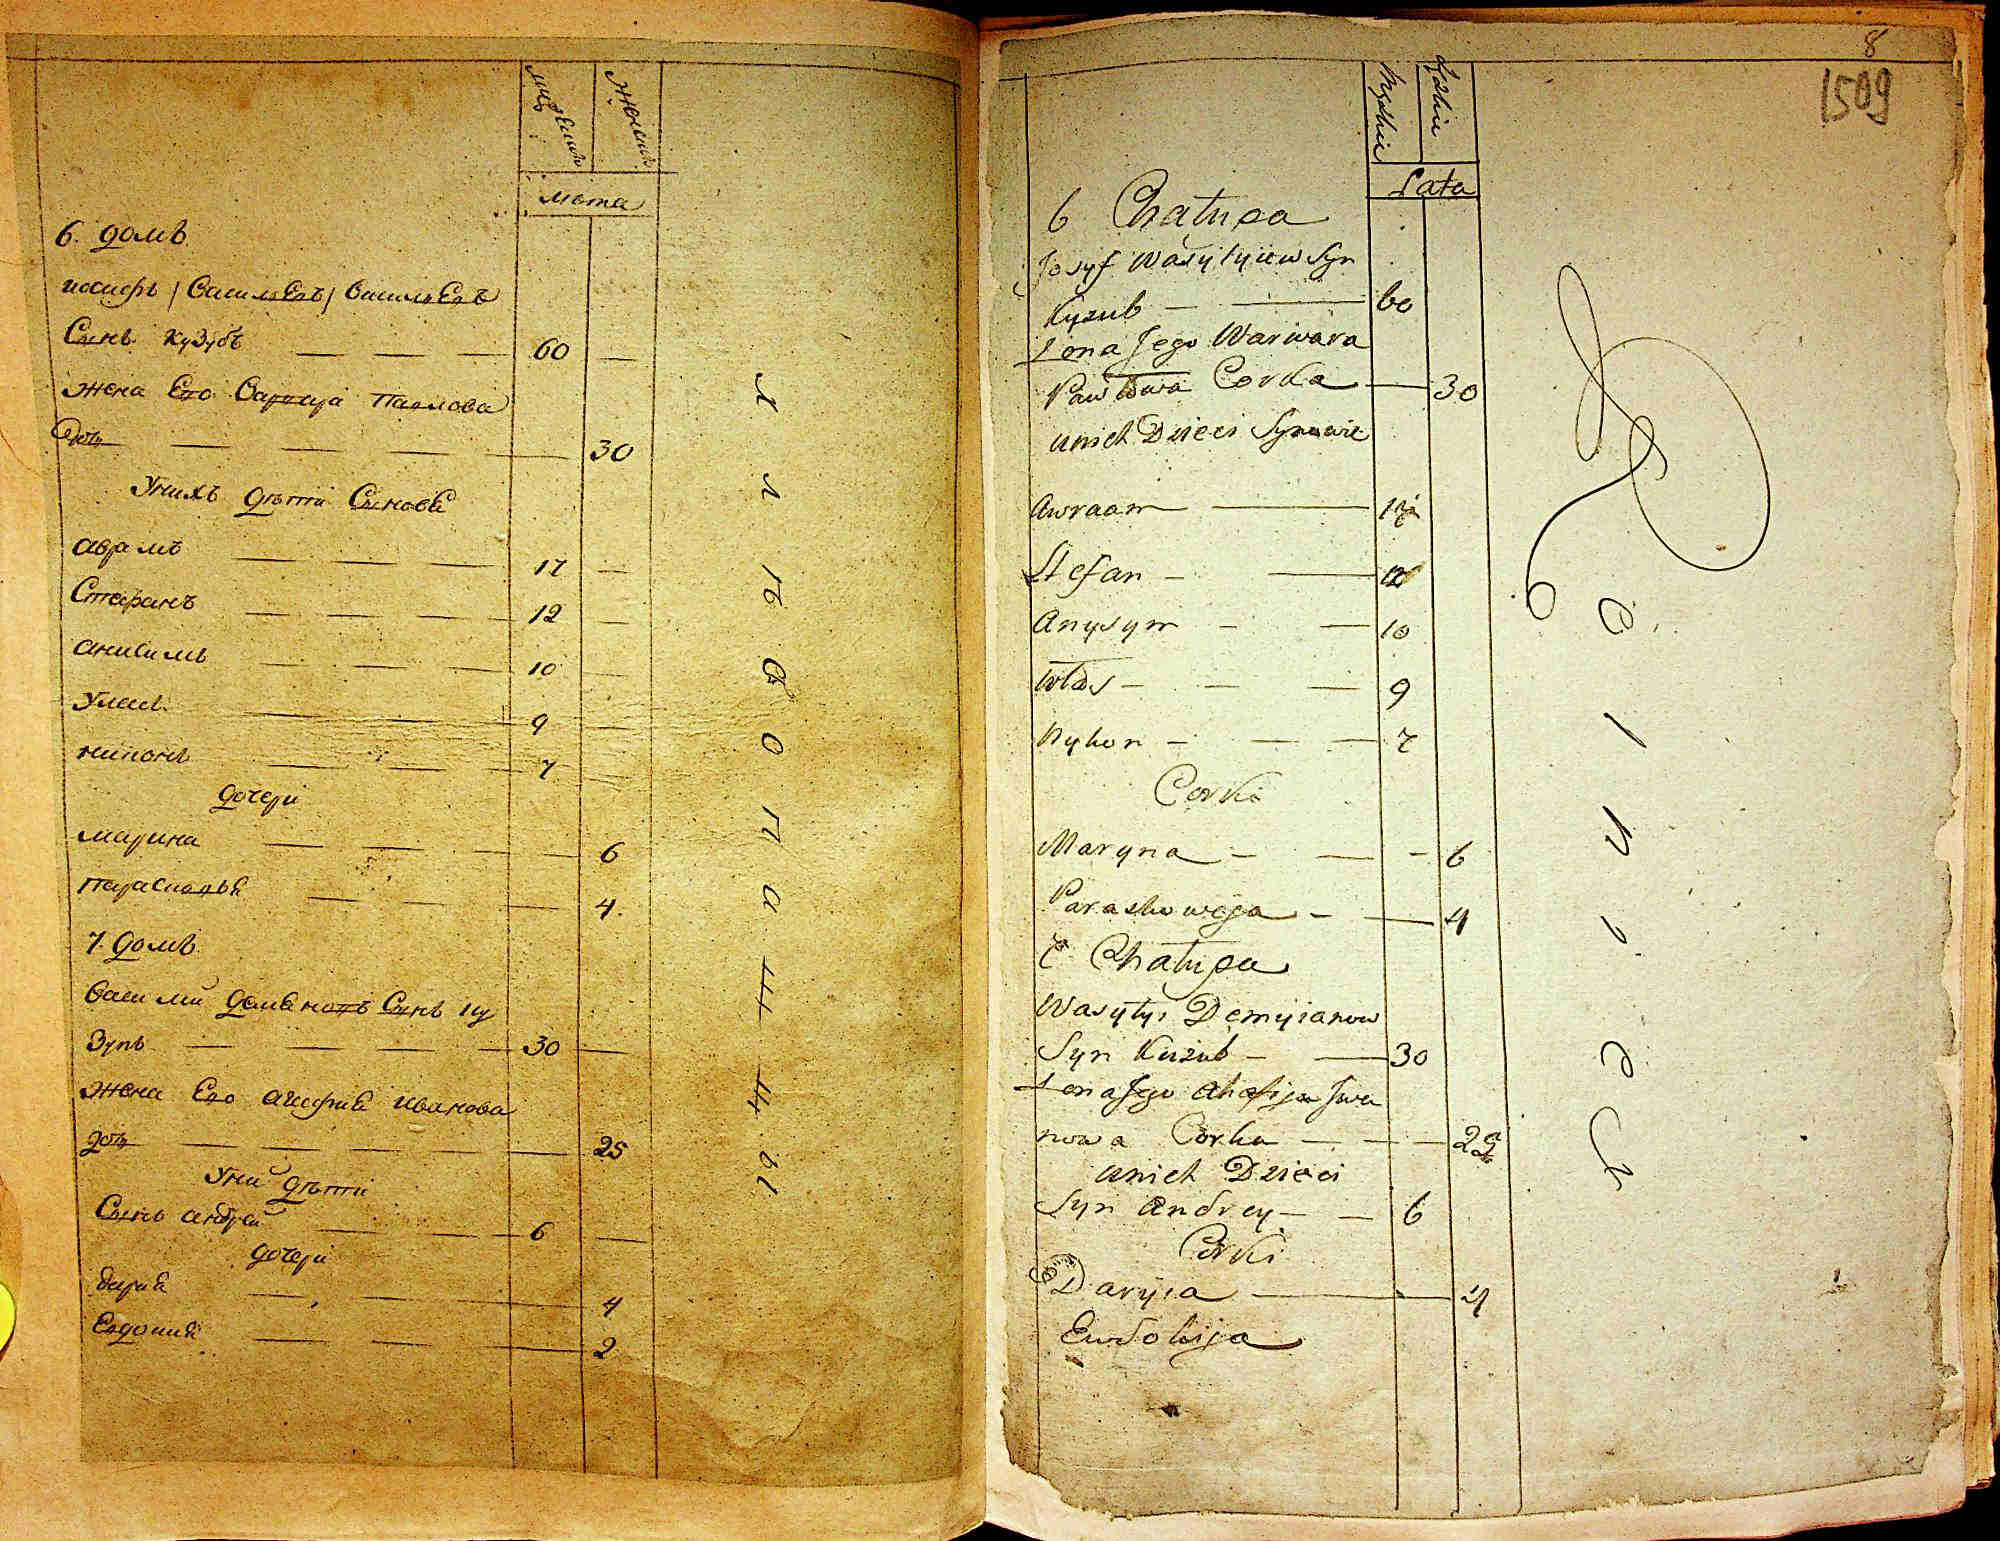 мужескъ
женскъ
лета
6. домъ
иосифъ / Василевъ / Василевъ
Сынъ кузубъ 60
жена Его Варвара Павлова
дочь 30
Унихъ дѣти Сынове
аврамъ 17
Стефанъ 12
анисимъ 10
Уласъ 9
никонъ 7
дочери
марина 6
параскевія 4.
7. домъ
васили демяновъ Сынъ ку
зупъ 30
жена Его агафия иванова
дочь 25
Уни дѣти
Сынъ андрей 6
дочери
дария 4
Евдокия 2
хлѣбопашцы
8
1509
Męzkie
Żękie
Lata
6 Chatupa
Josyf Wasylyiew Syn
Kuzub 60
Zona Jego Warwara
Pawłowa Corka 30
unich Dzieci Synowie
Awraam 17
Stefan 12
Anysym 10
Włas 9
Nykon 7
Corki
Maryna 6
Paraskowęja 4
7 Chatupa
Wasyly Demyianow
Syn Kuzub 30
Zona Jego Ahafija Jwa
nowa Corka 25
unich Dzieci
Syn Andrey 6
Corki
Daryia 4
Ewdokija
Rolniey